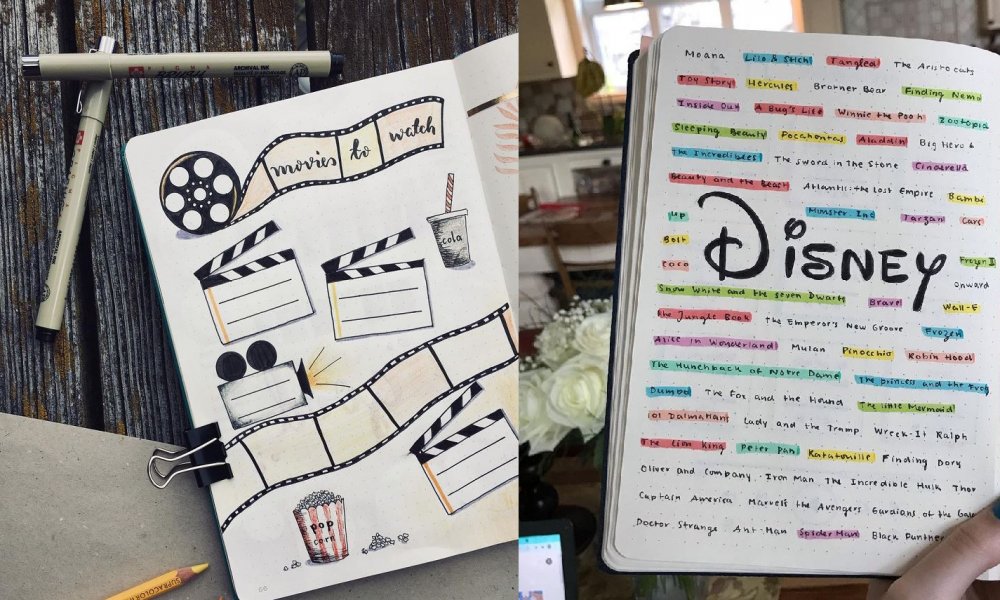 PIGMA
ARCHIVAL INK
movies to watch
cola
pop
corn
SUPRACOLOR
Moana Lilo & Stich Tangled The Aristocats
Toy Story Hercules Brother Bear Finding Nemo
Inside Out A Bug's Life Winnie the Pooh Zootopia
Sleeping Beauty Pocahontas Aladdin Big Hero 6
The Incredibles The Sword in The Stone Cinderella
Beauty and the Beast Atlantic: the Lost Empire Bambi
Up Monster. Inc Tarzan Cars
Bolt Disney Frozen II
Coco onward
Snow White and the seven Dwarfs Brave Wall-E
The Jungle Book The Emperor's New Groove Frozen
Alice in Wonderland Mulan Pinocchio Robin Hood
The Hunchback of Notre Dame The princess and the frog
Dumbo The Fox and the Hound The little Mermaid
Lady and the Tramp Wreck-It Ralph
The Lion King Peter Pan Ratatouille Finding Dory
Oliver and Company Iron Man The Incredible Hulk Thor
Captain America Marvel's the Avengers Gardians of the
Doctor Strange Ant-Man Spider Man Black Panther